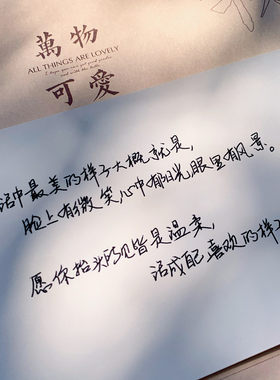 萬物
ALL THINGS ARE LOVELY
可愛
活中最美的样子大概就是,
脸上有微笑心中有阳光眼里有风景。
愿你抬头所见皆是温柔,
活成自己喜欢的样子